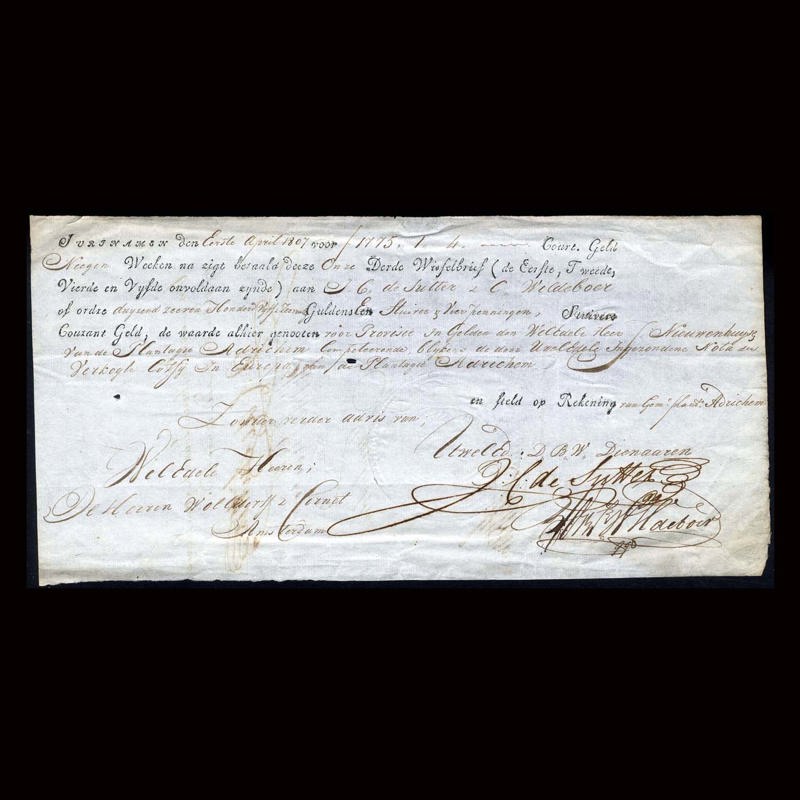 SURINAMEN den Eerste April 1807 voor ƒ 1775. 1. 4. Cour.t Geld
Neegen Weeken na zigt betaald deeze Onze Derde Wisselbrief (de Eerste, Tweede,
Vierde en Vyfde onvoldaan zynde) aan J. C. de Sutter & C Wildeboer
of ordre duyzend zeeven Honderd Guldens Een Stuiver & vier penningen, Stuivers
Courant Geld, de waarde alhier genooten voor Provisie In Gelden den Weledele Heer Nieuwenhuys
van de Plantagie Adrichem Competeerende blykens de door Nota der
Verkogte Coffy In Europa van de Plantagie Adrichem
en steld op Rekening van Adrichem
Zonder verder advis van,
UwelEd: D. B. W. Dienaaren
Weledele Heeren,
J. C. de Sutter
De Heeren & Cernot
Amsterdam